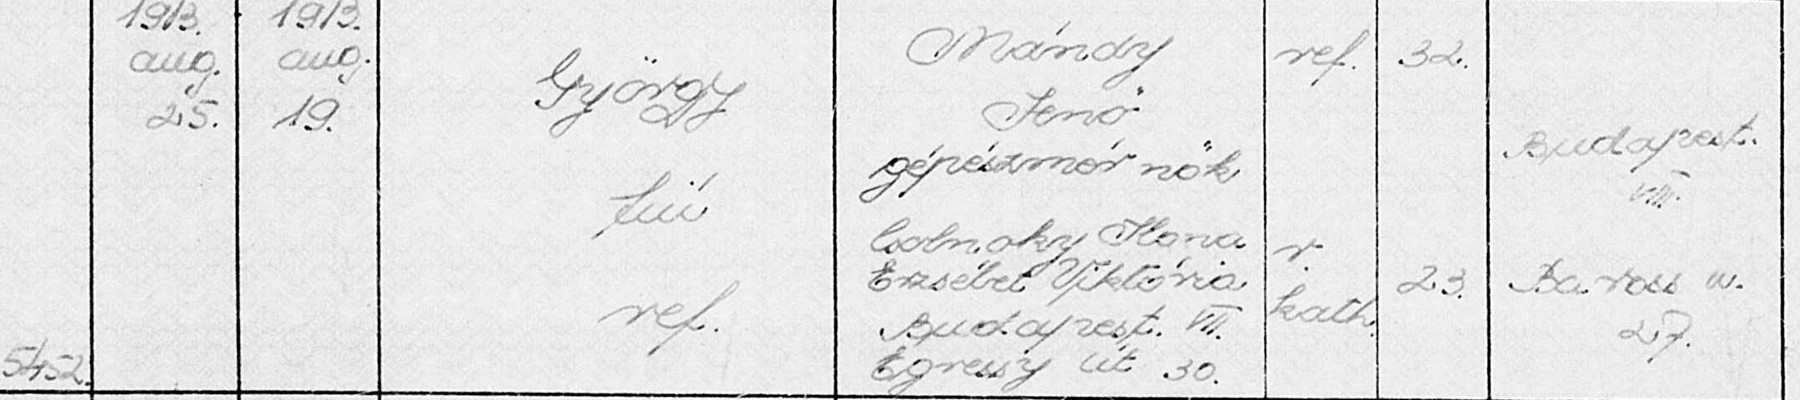 5452.
1913.
aug.
25.
1913.
aug.
19.
György
fiú
ref.
Mándy
Jenő
gépészmérnök
Csolnoky Ilona
Erzsébet Viktória
Budapest. VII.
Egressy út 30.
ref.
r.
kath.
32.
23.
Budapest.
VIII.
Baross u.
27.